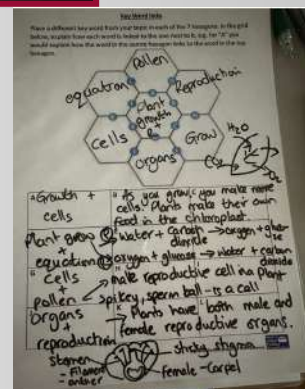 Key Word links
Place a different key word from your topic in each of the 7 hexagons. In the grid
below, explain how each word is linked to the one next to it, e.g. for "A" you
would explain how the word in the centre hexagon links to the word in the top
hexagon.
Pollen
equation
Reproduction
Plant
growth
Cells
Grow
organs
H2O
CO2
O2
Growth +
cells
As you grow, you make more
cells. Plants make their own
food in the chloroplast.
Plant grow
+
equation
water + carbon
dioxide → oxygen +
oxygen + glucose → water + carbon
dioxide
cells
+
pollen
make reproductive cell in a plant
spikey, sperm ball - is a cell
organs
+
reproduction
Plants have both male and
female reproductive organs.
stamen
- Filament
- anther
sticky stigma
female - Carpel